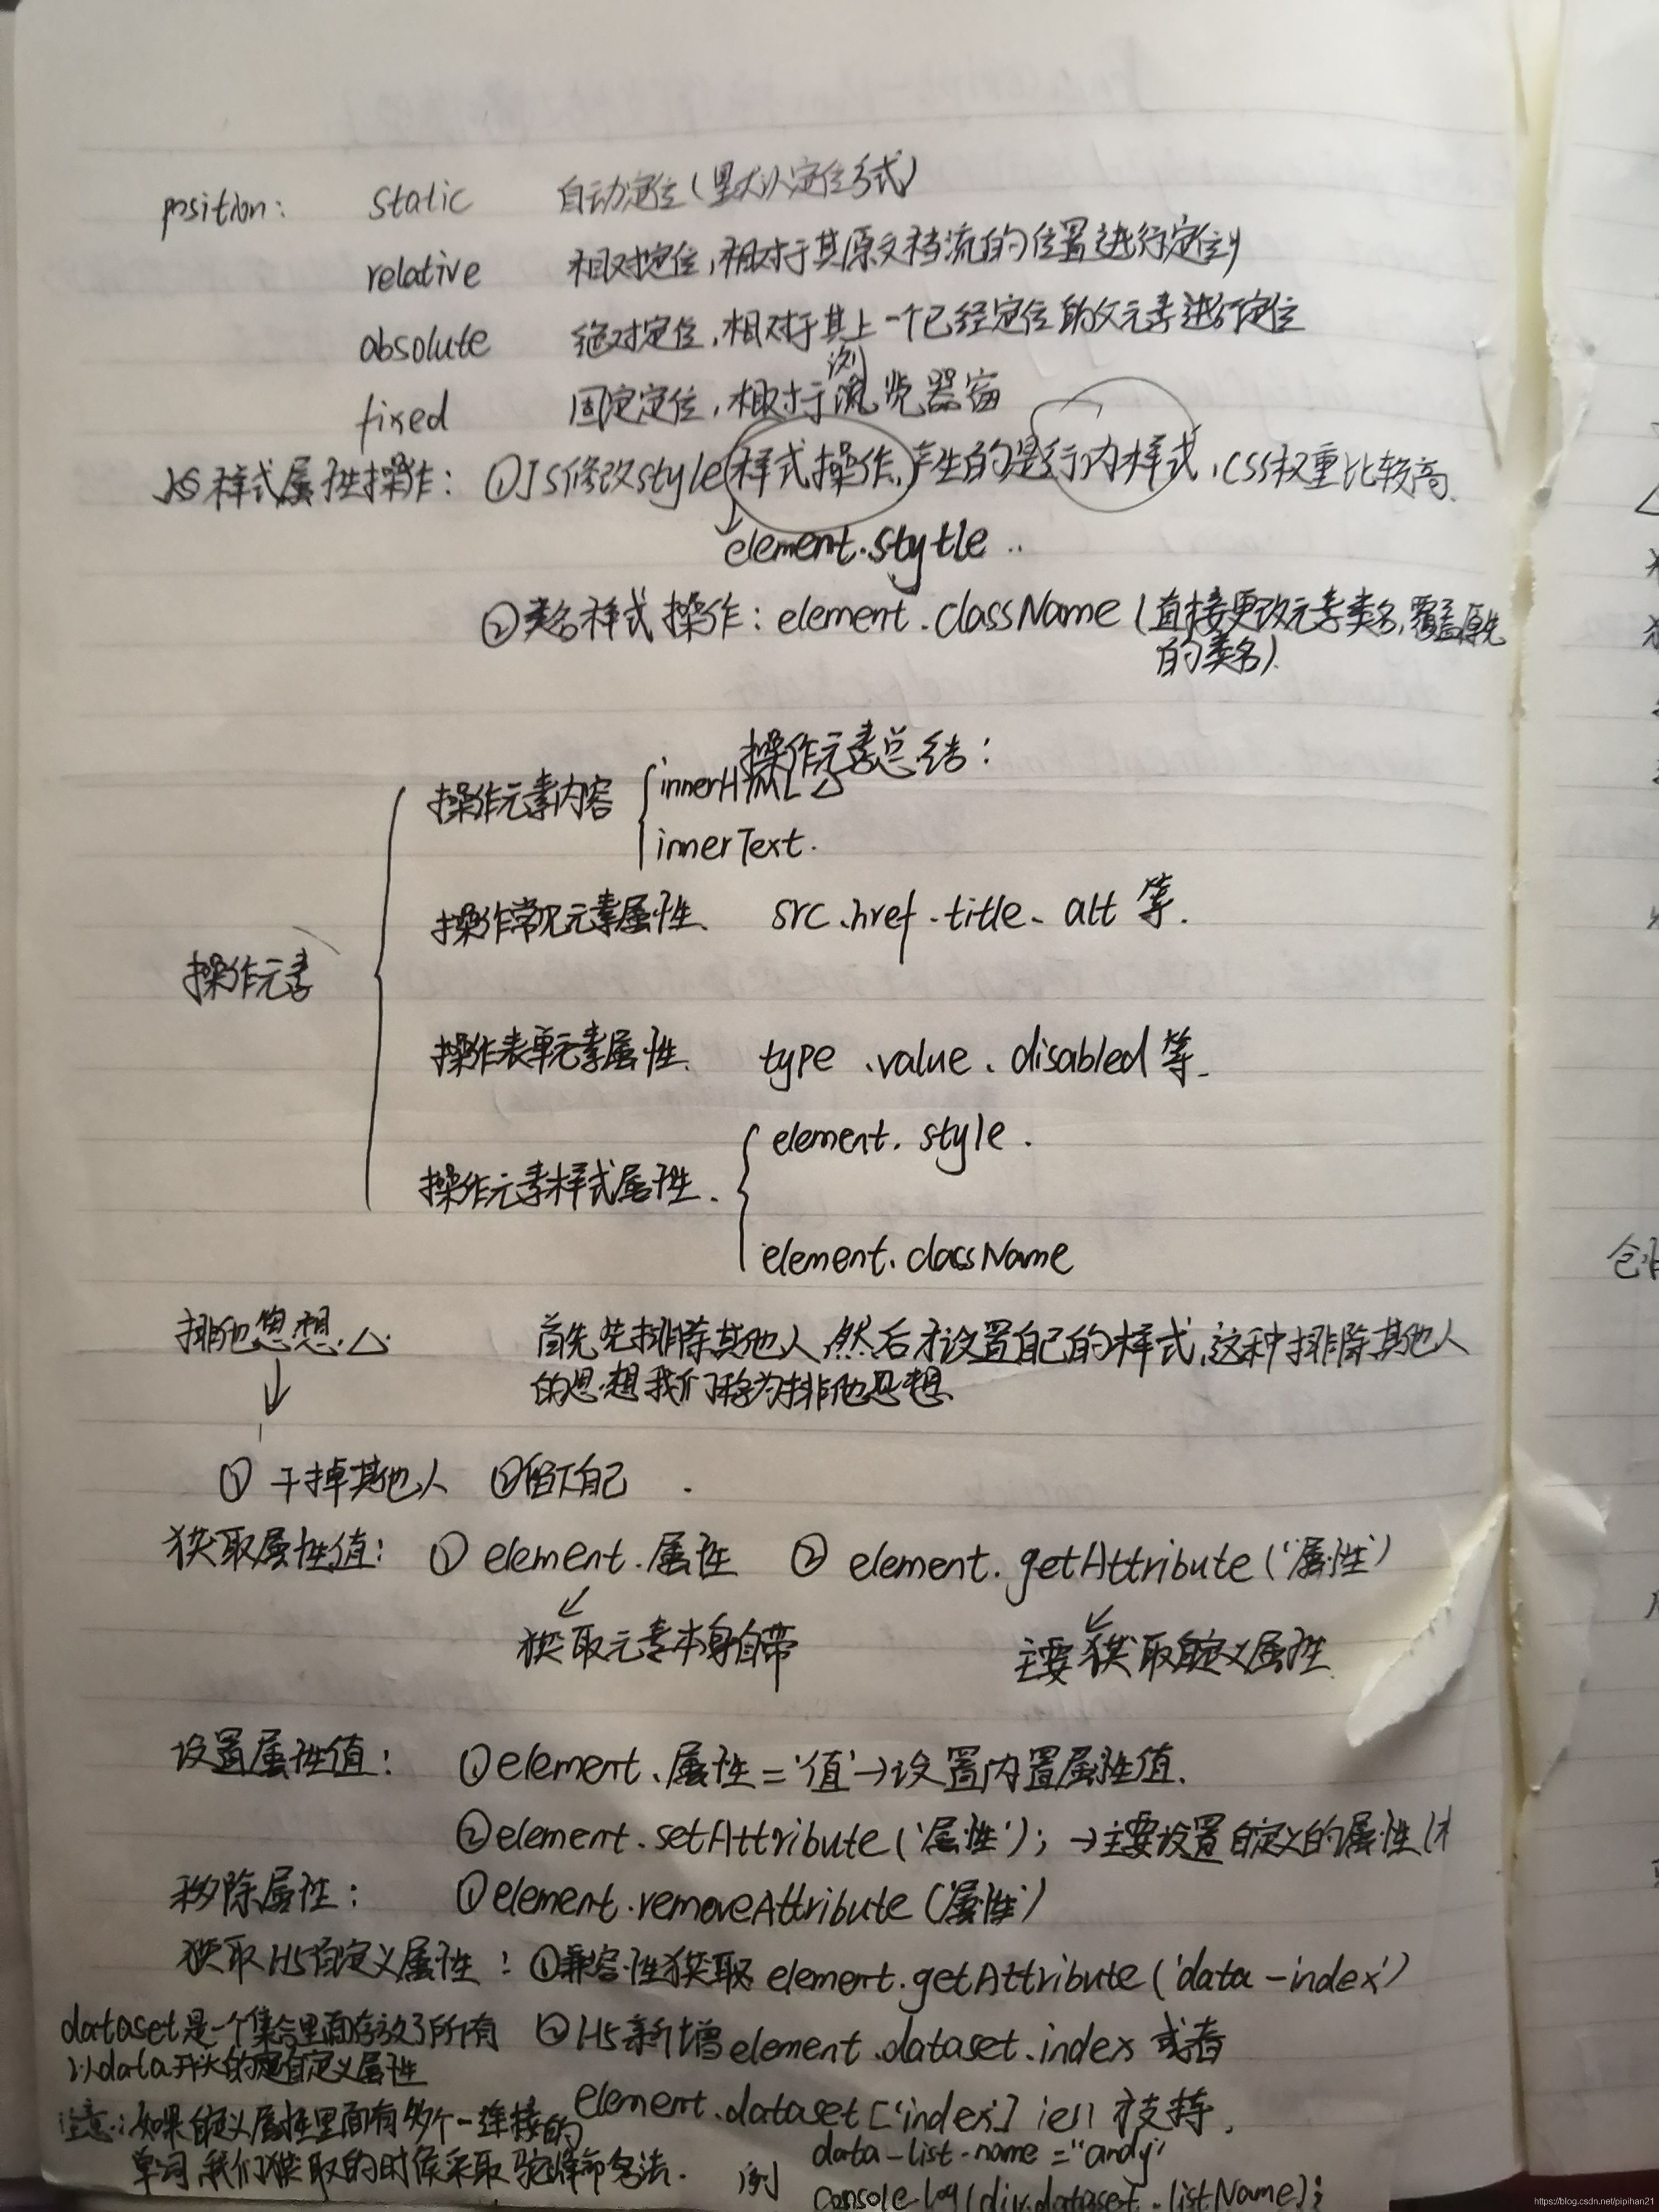 position: static 自动定位(默认定位方式)
relative 相对定位,相对于其原文档流的位置进行定位
absolute 绝对定位,相对于其上一个已经定位的父元素进行定位
浏
fixed 固定定位,相对于浏览器窗
JS样式属性操作: ①JS修改style样式操作,产生的是行内样式,CSS权重比较高.
element.stytle ..
②类名样式操作: element.className (直接更改元素类名,覆盖原先
的类名).
操作元素总结:
操作元素内容 innerHTML △
innerText.
操作常见元素属性、 src、href、title、alt 等.
操作元素
操作表单元素属性. type 、value 、disabled 等.
element. style .
操作元素样式属性.
element.className
排他思想.△. 首先先排除其他人,然后才设置自己的样式,这种排除其他人
的思想我们称为排他思想.
① 干掉其他人 ②留下自己 .
获取属性值: ① element.属性 ② element.getAttribute('属性')
获取元素本身自带 主要获取自定义属性.
设置属性值: ①element.属性='值'→设置内置属性值.
②element.setAttribute('属性'); →主要设置自定义的属性(
移除属性: ①element.removeAttribute('属性')
获取H5自定义属性: ①兼容性获取 element.getAttribute('data-index')
dataset是一个集合里面存放了所有 ②H5新增element.dataset.index 或者
以data开头的自定义属性
element.dataset['index'] ie11才支持.
注意:如果自定义属性里面有多个-连接的
单词,我们获取的时候采取驼峰命名法.
例 data-list-name="andy"
console.log(div.dataset.listName);
https://blog.csdn.net/pipihan21